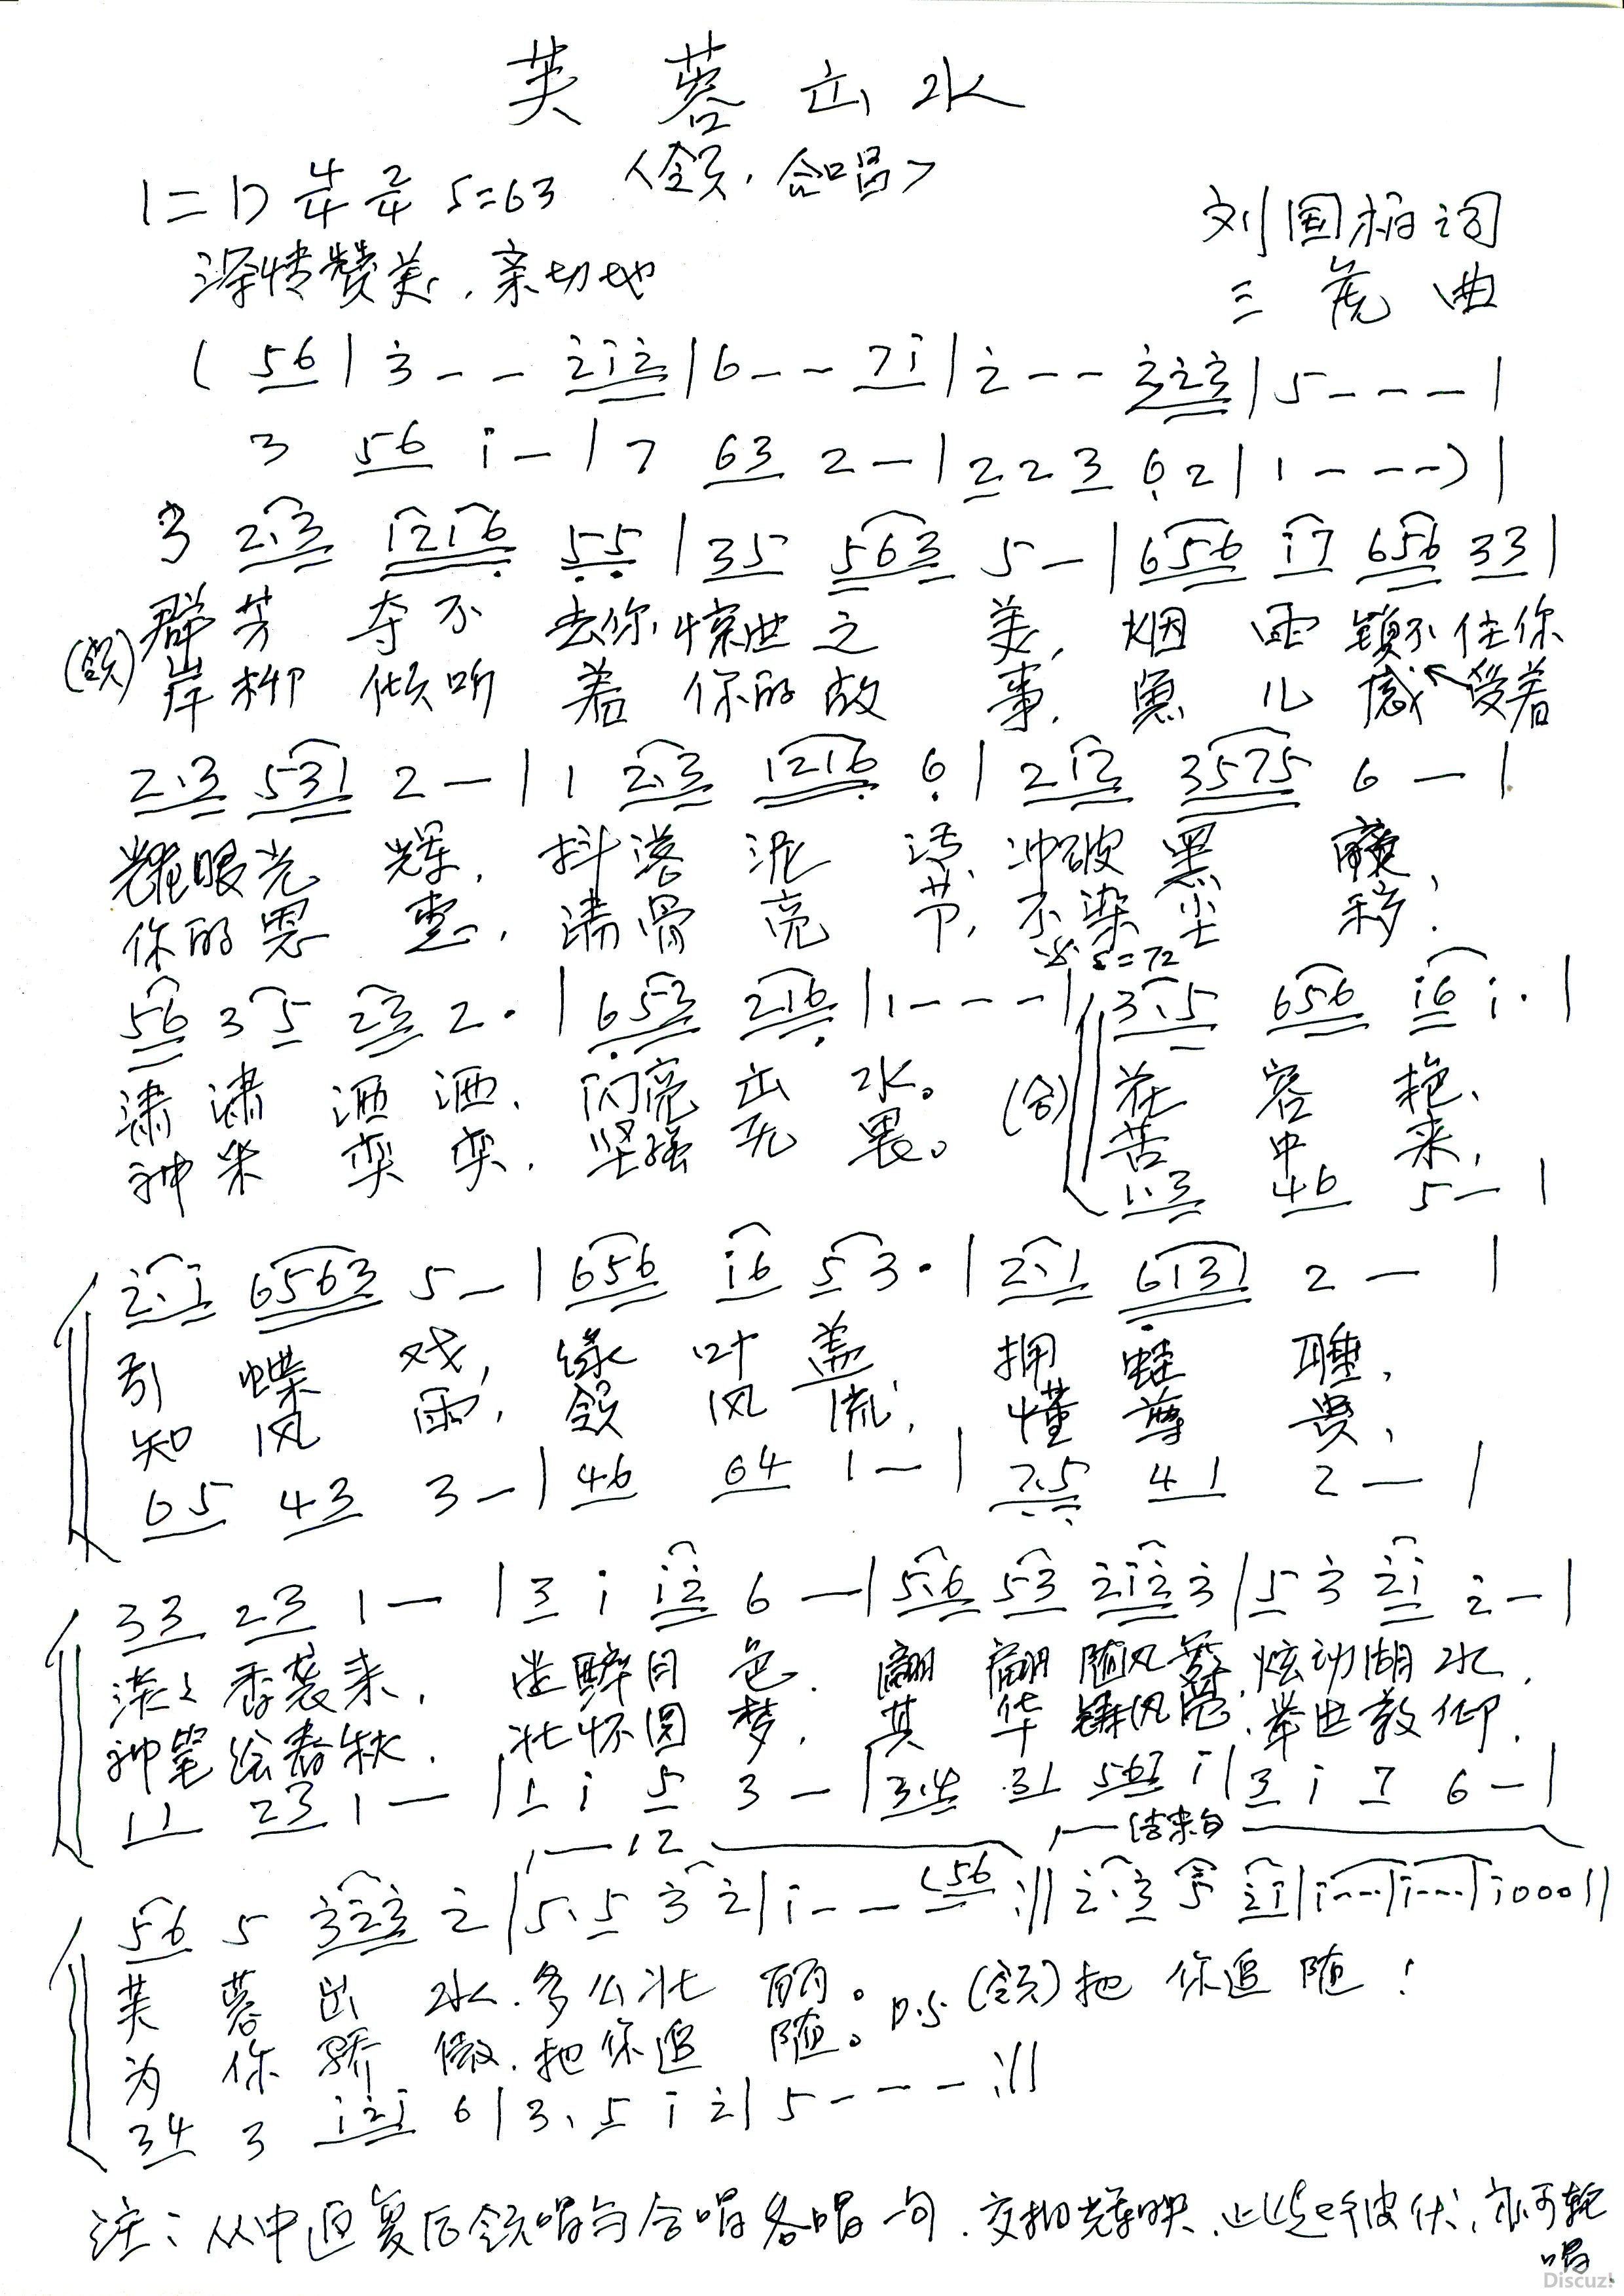 芙蓉出水
1=D 4/4 2/4 5=63 〈领、合唱〉
深情赞美、亲切地
刘国柄词
三虎曲
( 56 | 3 - - 212 | 6 - - 71 | 2 - - 323 | 5 - - - |
3 56 i - | 7 63 2 - | 2 2 3 6 2 | 1 - - - ) |
3 2·3 1216 55 | 35 563 5 - | 656 i7 656 33 |
(领) 群芳夺不去你惊世之美、烟雨锁不住你
岸柳倾听着你的故事、鱼儿感受着
2·3 531 2 - | 1 2·3 1216 6 | 212 3575 6 - |
耀眼光辉、抖落泥污、冲破黑
你的恩惠、清骨亮节、不染尘
5=72
56 35 23 2· | 653 216 | 1 - - - | 3·5 656 i6 i· |
潇潇洒洒、闪亮出水。(合) 花容艳、
神采奕奕、坚强无畏。苦中来、
1·3 46 5 - |
2·1 6563 5 - | 656 i6 5 3· | 2·1 6131 2 - |
引蝶戏、绿叶盖、拥蛙睡、
知风雨、领风流、懂尊贵、
65 43 3 - | 46 64 1 - | 7·5 41 2 - |
33 23 1 - | 3 i i2 6 - | 5·6 53 212 3 | 5 3 21 2 - |
淡淡香袭来、醉月色、翩翩随风舞、炫动湖水、
神笔绘春秋、壮怀圆梦、其华铸风范、举世敬仰、
11 23 1 - | 1 i 5 3 - | 3·4 31 567 i | 3 i 7 6 - |
12 结束句
56 5 323 2 | 5·5 3 2 | i - - (56 :|| 2·3 5 21 | i - - - | i - - - | i 0 0 0 ||
芙蓉出水、多么壮丽。D.S (领) 把你追随！
为你骄傲、把你追随。
34 3 i2i 6 | 3·5 i 2 | 5 - - - :||
注：从中返复后领唱与合唱各唱一句、交相辉映、此起彼伏、亦可轮
唱
Discuz!